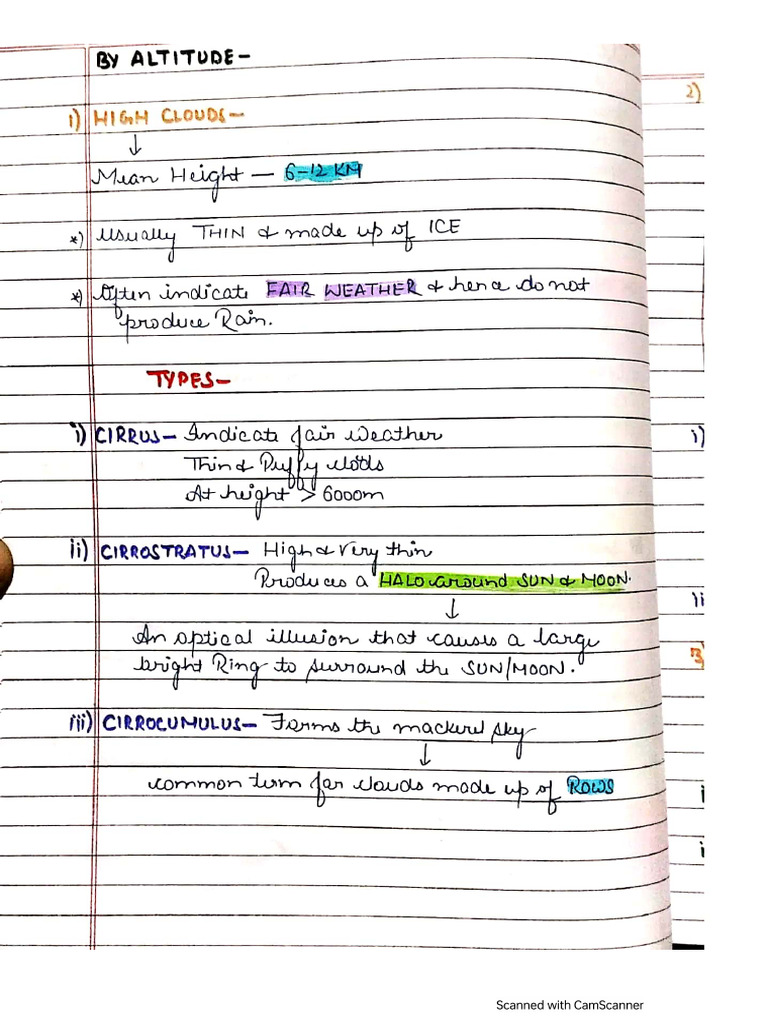 BY ALTITUDE-
2)
i) HIGH CLOUDS-
↓
Mean Height — 6-12 KM
*) Usually THIN & made up of ICE
*) Often indicate FAIR WEATHER & hence do not
produce Rain.
TYPES-
i) CIRRUS- Indicate fair weather
i)
Thin & Puffy clouds
At height > 6000m
ii) CIRROSTRATUS- High & Very thin
Produces a HALO around SUN & MOON.
↓
ii
An optical illusion that causes a large
bright Ring to surround the SUN/MOON.
3
iii) CIRROCUMULUS- Forms the mackerel sky
↓
common term for clouds made up of ROWS
i
i
Scanned with CamScanner